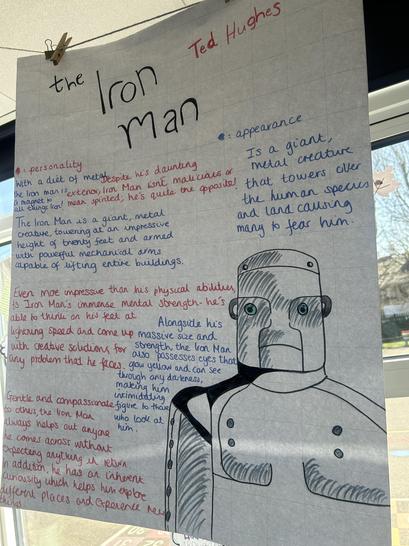 the Iron Man
Ted Hughes
: appearance
Is a giant,
metal creature
that towers over
the human species
and land causing
many to fear him.
: personality
With a diet of metal,
the iron man is
a magnet to
all things iron!
Despite his daunting
exterior, Iron Man isnt malicious or
mean spirited; he's quite the opposite!
The Iron Man is a giant, metal
creature, towering at an impressive
height of twenty feet and armed
with powerful mechanical arms
capable of lifting entire buildings.
Even more impressive than his physical abilities
is Iron Man's immense mental strength - he's
able to think on his feet at
lightning speed and come up
with creative solutions for
any problem that he faces.
Alongside his
massive size and
strength, the Iron Man
also possesses eyes that
glow yellow and can see
through any darkness,
making him
intimidating
figure to those
who look at
him.
Gentle and compassionate
to others, the Iron Man
always helps out anyone
he comes across without
expecting anything in return
In addition, he has an inherent
curiosity which helps him explore
different places and experience new
things.